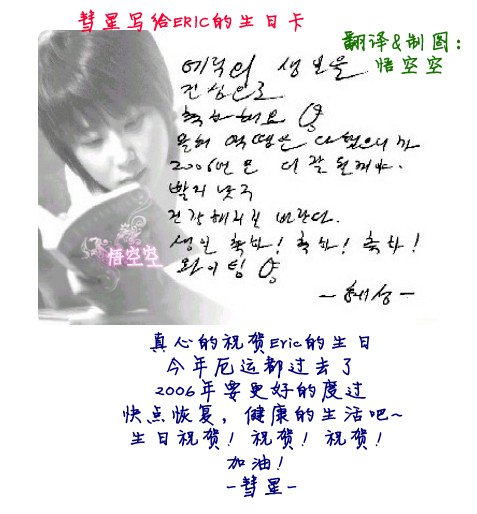 彗星写给ERIC的生日卡
翻译&制图:
悟空空
에릭의 생일을
진심으로
축하해요
올해 액땜은 다 했으니까
2006년은 더 잘 될꺼야.
빨리 낫구
건강해지길 바란다.
생일 축하! 축하! 축하!
화이팅
-혜성-
悟空空
真心的祝贺Eric的生日
今年厄运都过去了
2006年要更好的度过
快点恢复，健康的生活吧~
生日祝贺！祝贺！祝贺！
加油！
-彗星-